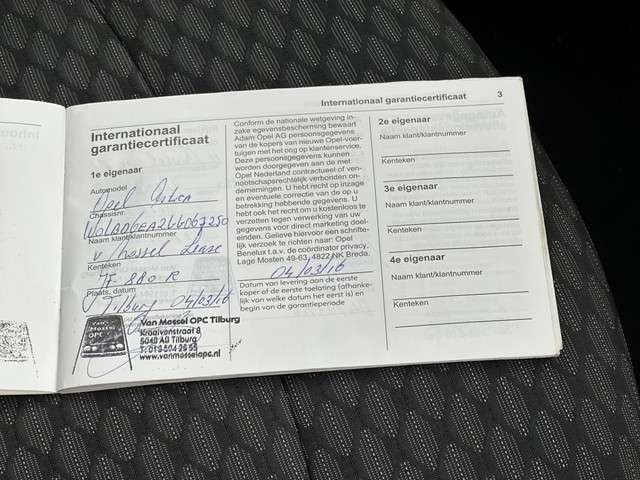 Internationaal garantiecertificaat 3
Internationaal
garantiecertificaat
1e eigenaar
Automodel
Opel Astra
Chassisnr.
Naam klant/klantnummer
v Mossel Lease
Kenteken
Plaats, datum
Tilburg 04/03/16
Van Mossel OPC Tilburg
Kraaivenstraat 8
5048 AB Tilburg
www.vanmosselopc.nl
Conform de nationale wetgeving in-
zake egevensbescherming bewaart
Adam Opel AG persoonsgegevens
van de kopers van nieuwe Opel-voer-
tuigen met het ong op klantenservice.
Deze persoonsgegevens kunnen
worden doorgegeven aan de met
Opel Nederland contractueel of ven-
nootschapsrechtelijk verbonden on-
dernemingen. U hebt recht op inzage
en eventuele correctie van de op u
betrekking hebbende gegevens. U
hebt ook het recht om u kosteloos te
verzetten tegen verwerking van uw
gegevens voor direct marketing doel-
einden. Gelieve hiervoor een schrifte-
lijk verzoek te richten naar: Opel
Benelux t.a.v. de coördinator privacy.
Lage Mosten 49-63, 4822 NK Breda.
04/03/16
Datum van levering aan de eerste
koper of de eerste toelating (afhanke-
lijk van welke datum het eerst is) en
begin van de garantieperiode
2e eigenaar
Naam klant/klantnummer
Kenteken
3e eigenaar
Naam klant/klantnummer
Kenteken
4e eigenaar
Naam klant/klantnummer
Kenteken